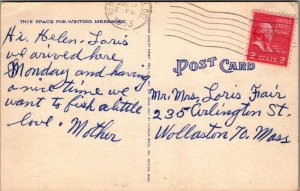 THIS SPACE FOR WRITING MESSAGES
Hi, Helen & Loris
we arrived here
Monday and having
a nice time we
want to fish a little
love. Mother
POST CARD
UNITED STATES
POSTAGE
2 CENTS 2
Mr. Mrs. Loris Fair
235 Arlington St.
Wollaston 70 Mass